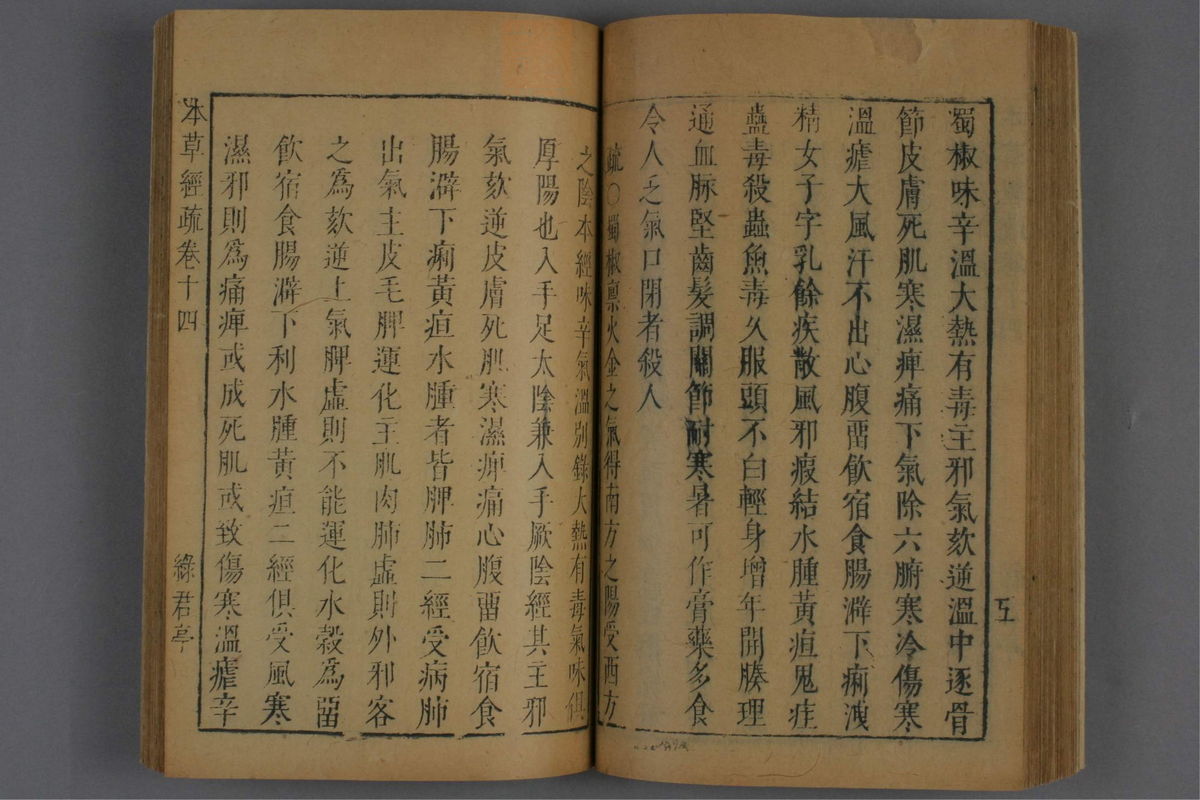 蜀椒味辛溫大熱有毒主邪氣欬逆溫中逐骨
節皮膚死肌寒濕痺痛下氣除六腑寒冷傷寒
溫瘧大風汗不出心腹畱飲宿食腸澼下痢洩
精女子字乳餘疾散風邪瘕結水腫黃疸鬼疰
蠱毒殺蟲魚毒久服頭不白輕身增年開腠理
通血脉堅齒髮調關節耐寒暑可作膏藥多食
令人乏氣口閉者殺人
疏〇蜀椒稟火金之氣得南方之陽受西方
之陰本經味辛氣溫別錄大熱有毒氣味俱
厚陽也入手足太陰兼入手厥陰經其主邪
氣欬逆皮膚死肌寒濕痺痛心腹畱飲宿食
腸澼下痢黃疸水腫者皆脾肺二經受病肺
出氣主皮毛脾運化主肌肉肺虛則外邪客
之爲欬逆上氣脾虛則不能運化水穀爲畱
飲宿食腸澼下利水腫黃疸二經俱受風寒
濕邪則爲痛痺或成死肌或致傷寒溫瘧辛
本草經疏卷十四
綠君亭